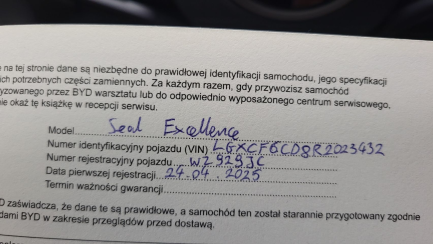 na tej stronie dane są niezbędne do prawidłowej identyfikacji samochodu, jego specyfikacji
ich potrzebnych części zamiennych. Za każdym razem, gdy przywozisz samochód
yzowanego przez BYD warsztatu lub do odpowiednio wyposażonego centrum serwisowego,
nie okaż tę książkę w recepcji serwisu.
Model Seal Excellence
Numer identyfikacyjny pojazdu (VIN) LGXCF6CD8R2023432
Numer rejestracyjny pojazdu WZ929JC
Data pierwszej rejestracji 24.04.2025
Termin ważności gwarancji
D zaświadcza, że dane te są prawidłowe, a samochód ten został starannie przygotowany zgodnie
dami BYD w zakresie przeglądów przed dostawą.